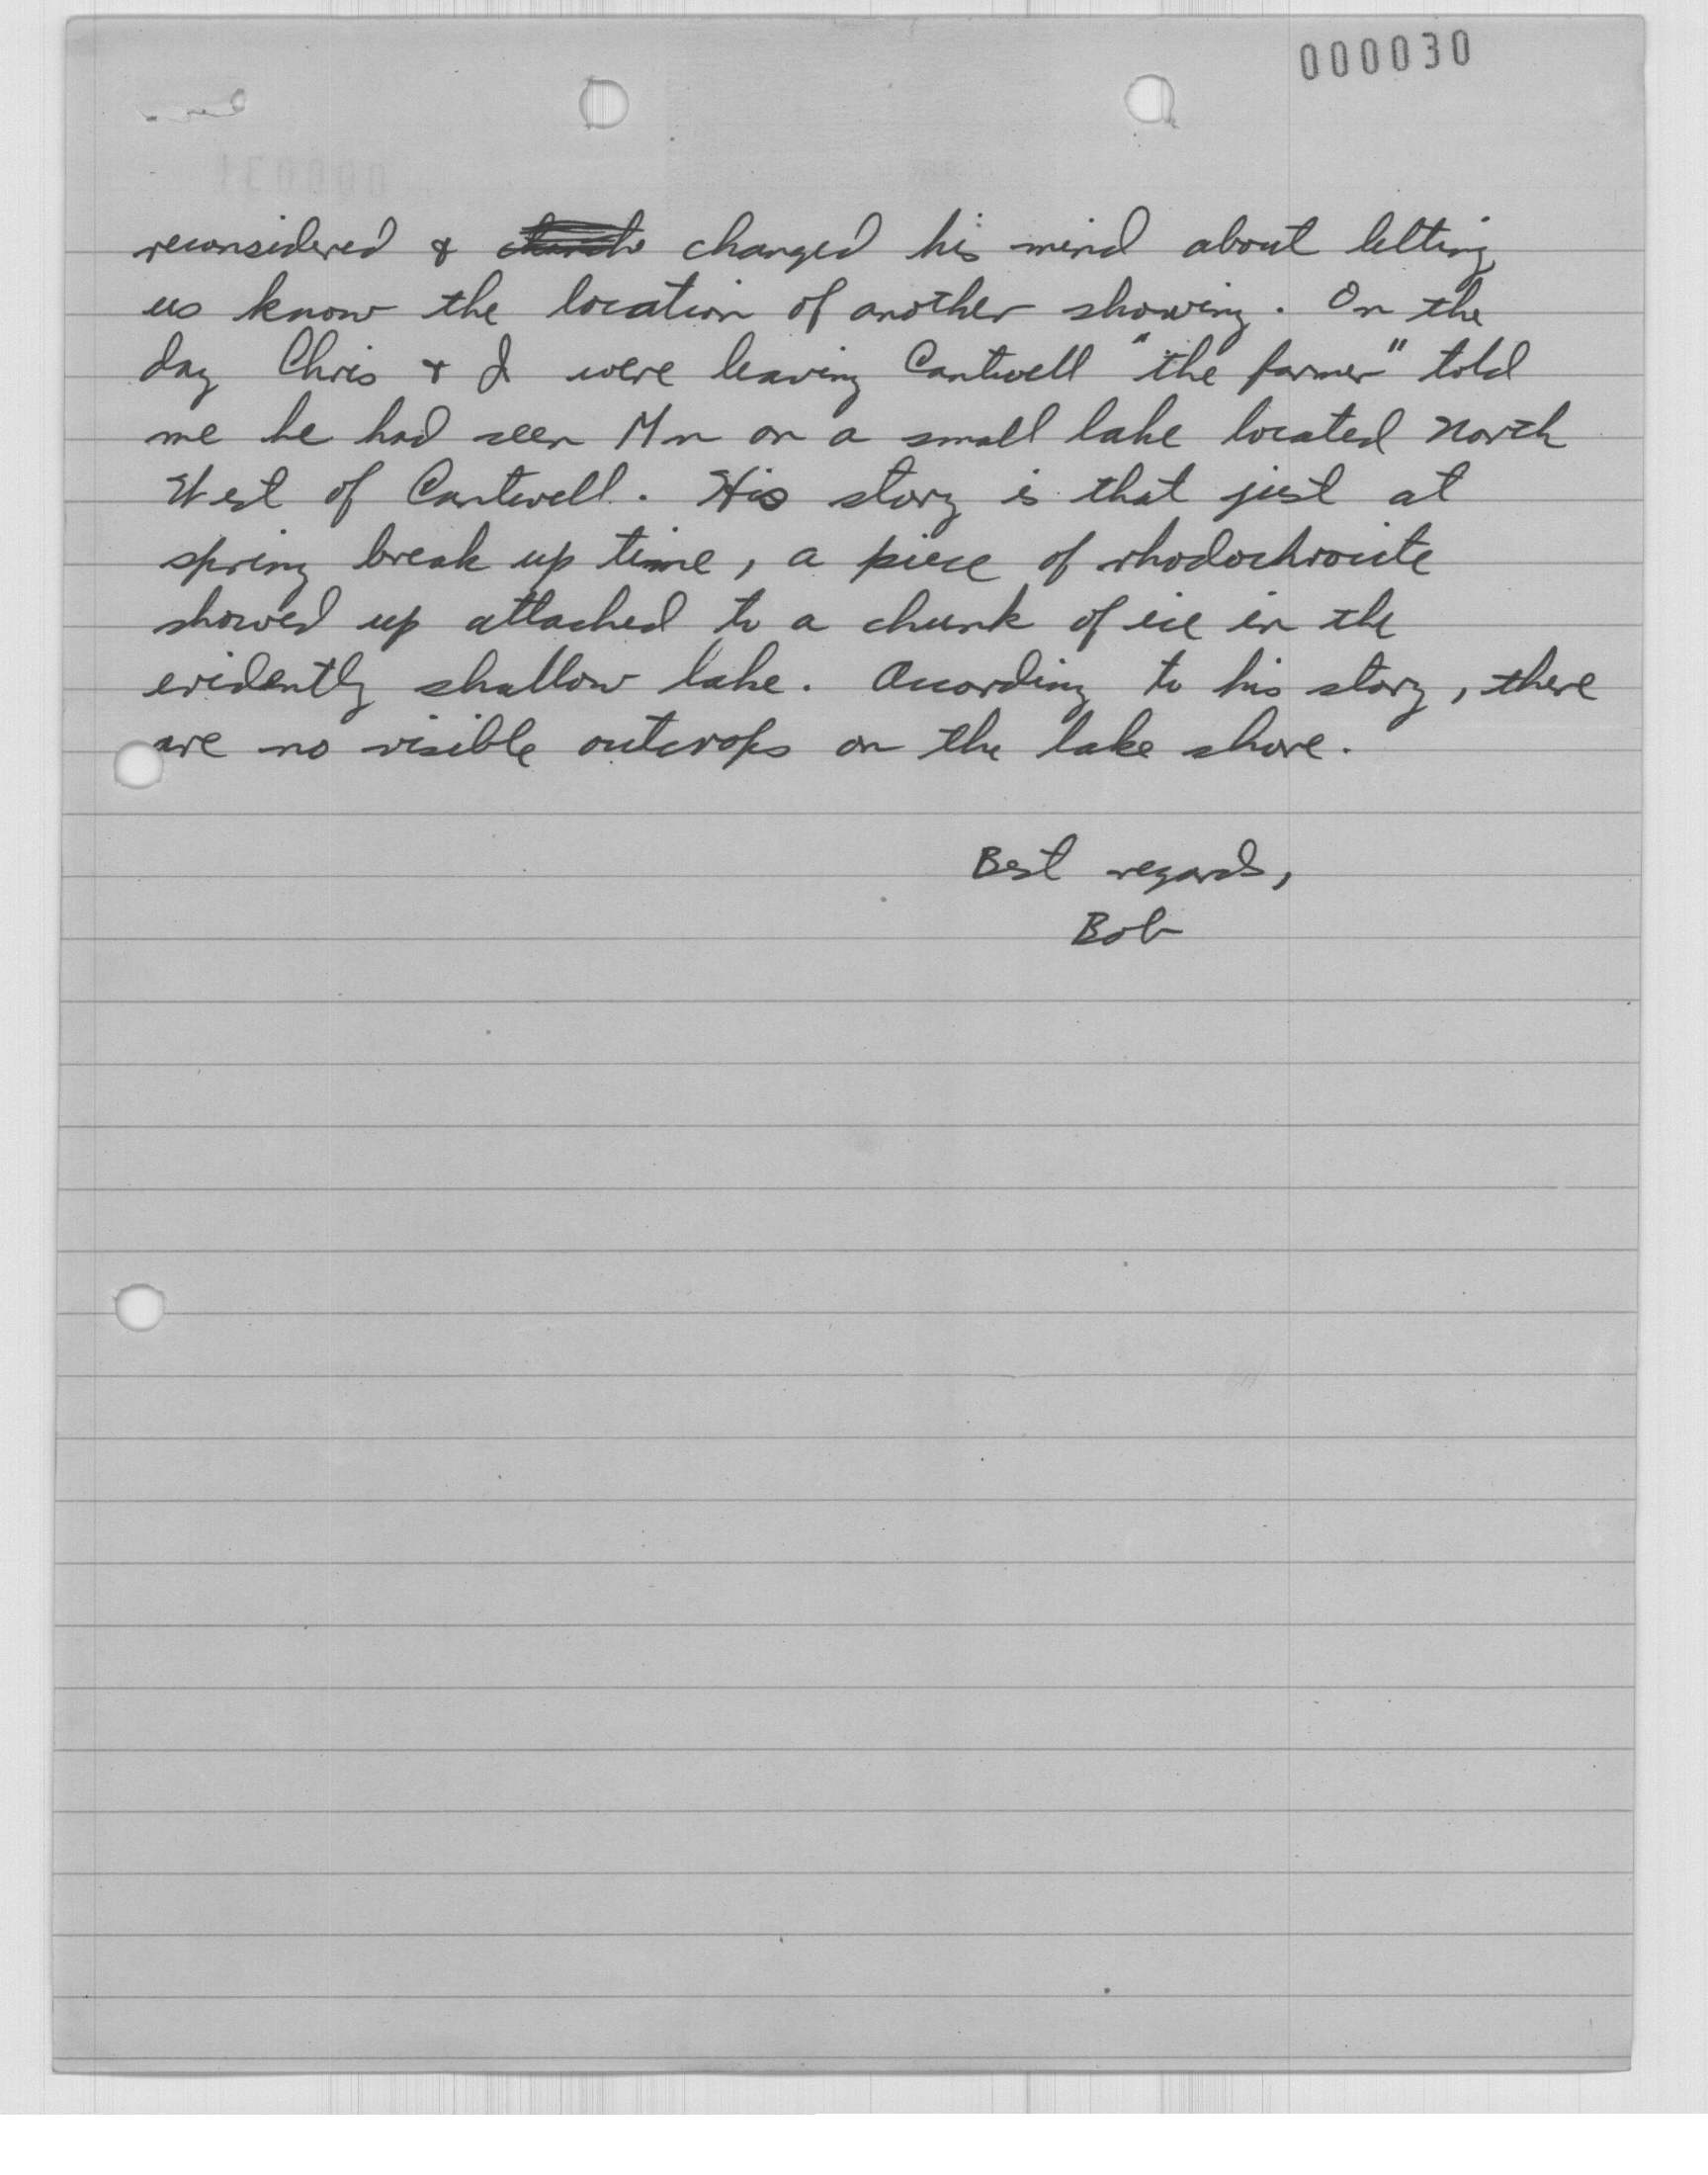 000030
reconsidered & changed his mind about letting
us know the location of another showing. On the
day Chris & I were leaving Cantwell "the farmer" told
me he had seen Mn on a small lake located North
West of Cantwell. His story is that just at
spring break up time, a piece of rhodochroite
showed up attached to a chunk of ice in the
evidently shallow lake. According to his story, there
are no visible outcrops on the lake shore.
Best regards,
Bob